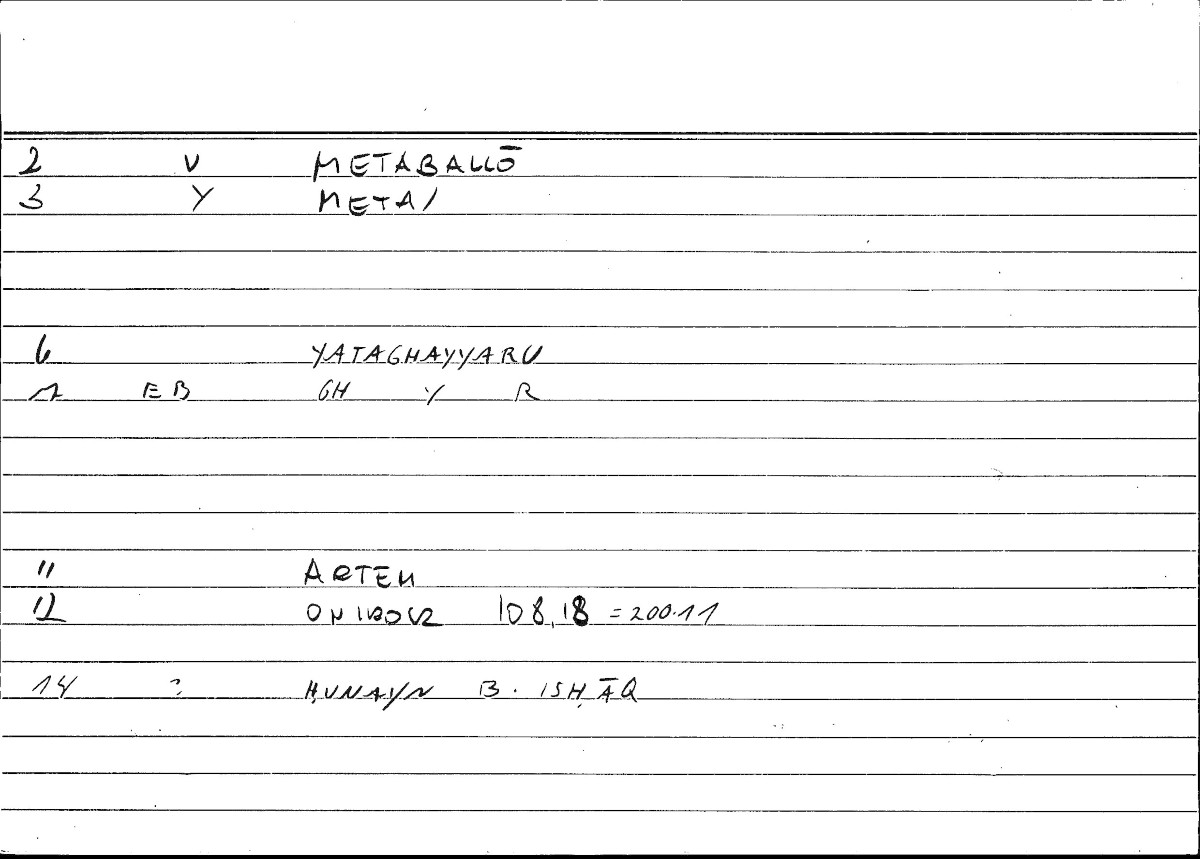 2 V METABALLŌ
3 Y META/
6 YATAGHAYYARU
7 EB GH Y R
11 ARTEM
12 ONIROCR 108,18 =200.11
14 ? ḤUNAYN B. ISḤĀQ